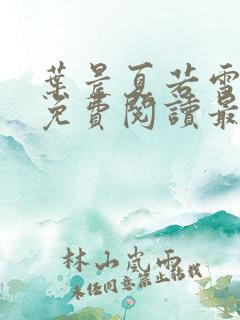 葉晨夏若雪
免費閱讀最
林山嵐雨
未经同意禁止转载